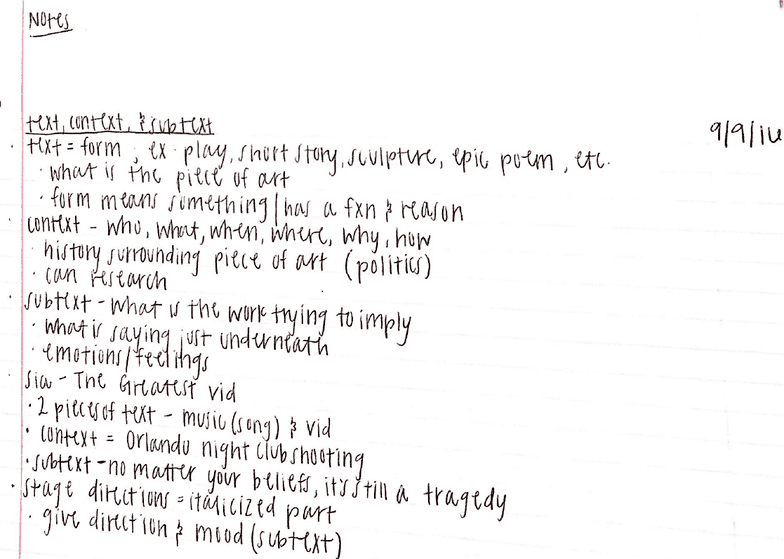 Notes
text, context, & subtext
9/9/16
· text = form ; ex. play, short story, sculpture, epic poem, etc.
· what is the piece of art
· form means something/has a fxn & reason
· context - who, what, when, where, why, how
· history surrounding piece of art (politics)
· can research
· subtext - what is the work trying to imply
· what is saying just underneath
· emotions/feelings
· Sia - The Greatest vid
· 2 pieces of text - music (song) & vid
· context = Orlando night club shooting
· subtext - no matter your beliefs, it's still a tragedy
· stage directions = italicized part
· give direction & mood (subtext)